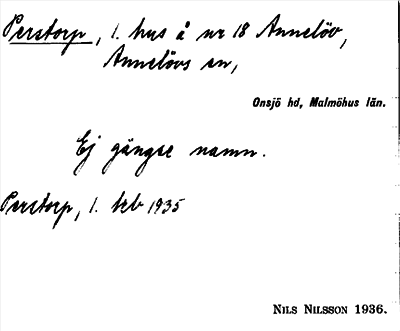 Perstorp, 1. hus å nr 18 Annelöv,
Annelövs sn,
Onsjö hd, Malmöhus län.
Ej gängse namn.
Perstorp, 1. teb 1935
NILS NILSSON 1936.